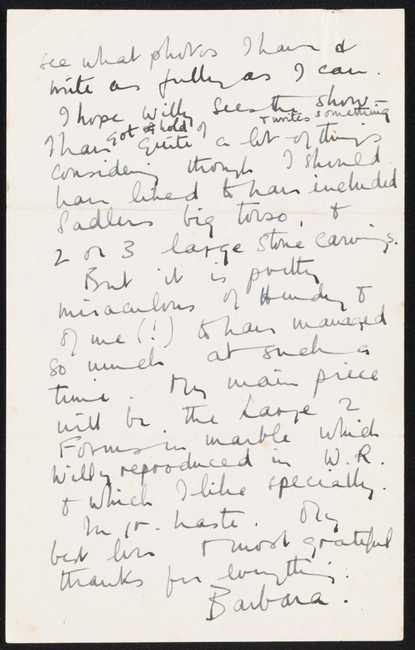 see what photos I have &
write as fully as I can.
I hope Willy sees the show –
& writes something
I have got hold of
quite a lot of things
considering though I should
have liked to have included
Sadlers big torso, &
2 or 3 large stone carvings.
But it is pretty
miraculous of Hendy &
of me (!) to have managed
so much at such a
time. My main piece
will be the large 2
Forms in marble which
Willy reproduced in W.R.
& which I like specially.
In gr. haste. My
best love & most grateful
thanks for everything.
Barbara.